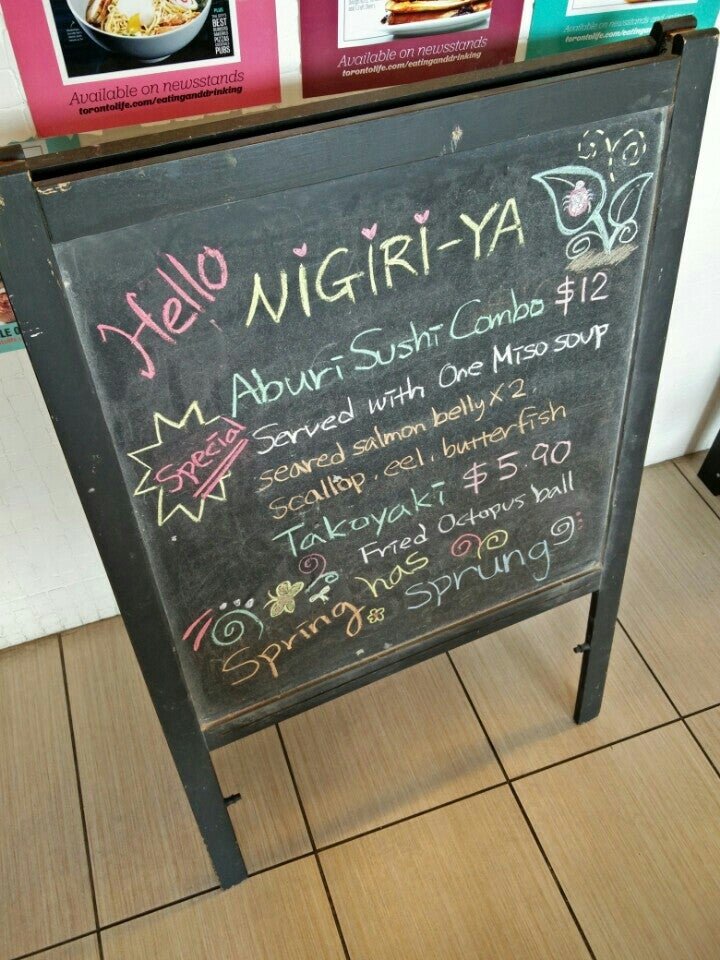 PLUS
BEST
PUBS
Available on newsstands
torontolife.com/eatinganddrinking
Available on newsstands
torontolife.com/eatinganddrinking
Available on newsstands
torontolife.com/eatinganddrinking
Hello NiGiRi-YA
Aburi Sushi Combo $12
Special
Served with One Miso soup
seared salmon belly x 2,
scallop, eel, butterfish
Takoyaki $5.90
Fried Octopus ball
Spring has sprung